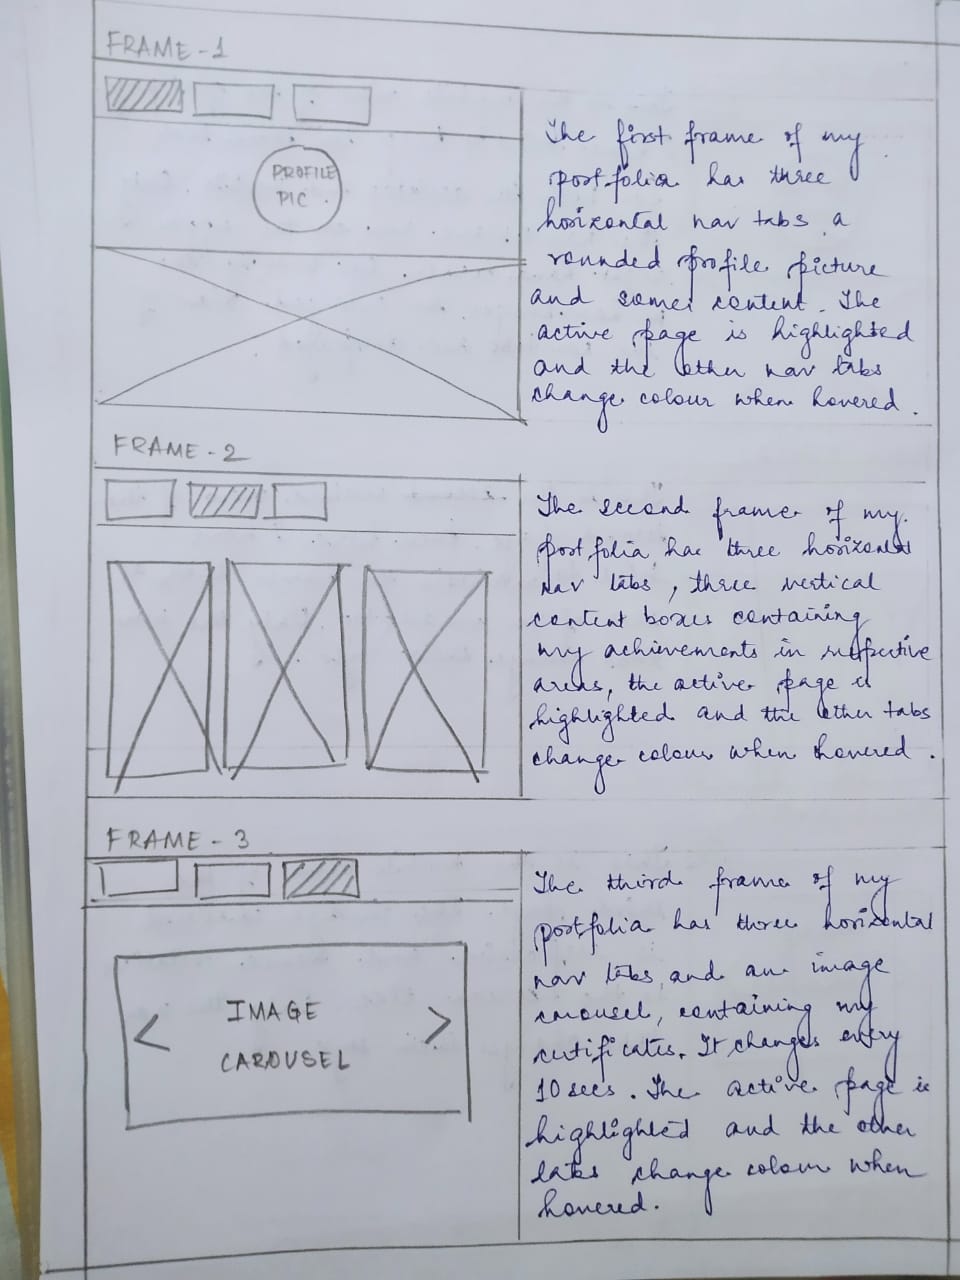 FRAME - 1
PROFILE
PIC
The first frame of my
portfolia has three
horizontal nav tabs a
rounded profile picture
and some content. The
active page is highlighted
and the other nav tabs
change colour when hovered.
FRAME - 2
The second frame of my
portfolia has three horizontal
nav tabs, three vertical
content boxes containing
my achievements in respective
areas, the active page is
highlighted and the other tabs
change colour when hovered.
FRAME - 3
IMAGE
CAROUSEL
The third frame of my
portfolia has three horizontal
nav tabs, and an image
carousel, containing my
certificates. It changes every
10 secs. The active page is
highlighted and the other
tabs change colour when
hovered.